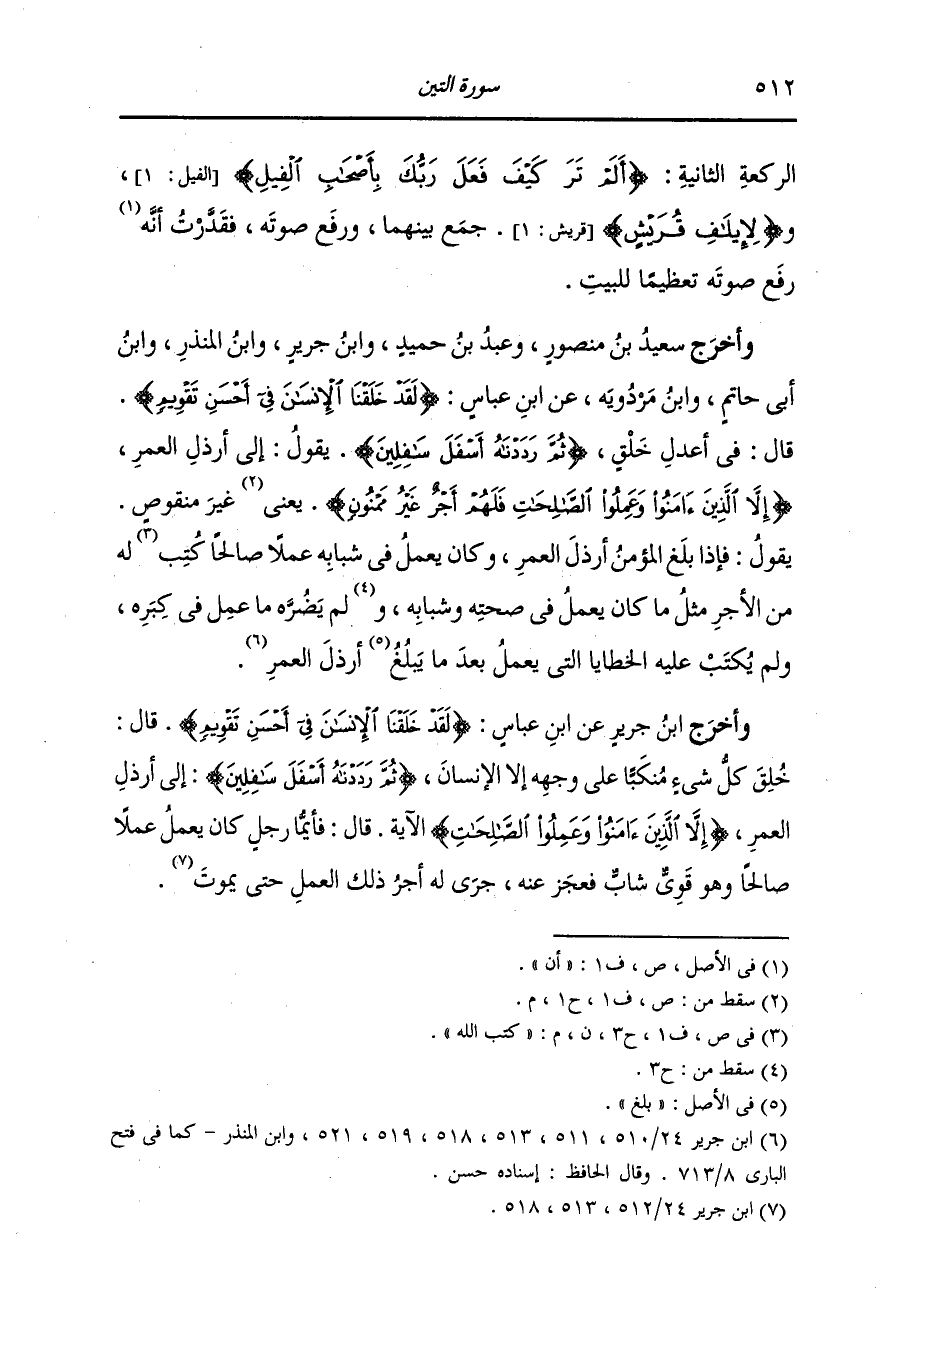 ٥١٢ سورة التين
الركعةِ الثانيةِ : ﴿أَلَمْ تَرَ كَيْفَ فَعَلَ رَبُّكَ بِأَصْحَٰبِ ٱلْفِيلِ﴾ [الفيل : ١] ،
و﴿لِإِيلَٰفِ قُرَيْشٍ﴾ [قريش : ١] . جمَع بينهما ، ورفَع صوتَه ، فقَدَّرْتُ أنَّه(١)
رفَع صوتَه تعظيمًا للبيتِ .
وأخرَج سعيدُ بنُ منصورٍ ، وعبدُ بنُ حميدٍ ، وابنُ جريرٍ ، وابنُ المنذرِ ، وابنُ
أبى حاتمٍ ، وابنُ مَرْدُويَه ، عن ابنِ عباسٍ : ﴿لَقَدْ خَلَقْنَا ٱلْإِنسَٰنَ فِىٓ أَحْسَنِ تَقْوِيمٍ﴾ .
قال : فى أعدلِ خَلْقٍ ، ﴿ثُمَّ رَدَدْنَٰهُ أَسْفَلَ سَٰفِلِينَ﴾ . يقولُ : إلى أرذلِ العمرِ ،
﴿إِلَّا ٱلَّذِينَ ءَامَنُوا۟ وَعَمِلُوا۟ ٱلصَّٰلِحَٰتِ فَلَهُمْ أَجْرٌ غَيْرُ مَمْنُونٍ﴾ . يعنى(٢) غيرَ منقوصٍ .
يقولُ : فإذا بلَغ المؤمنُ أرذلَ العمرِ ، وكان يعملُ فى شبابِه عملًا صالحًا كُتِب(٣) له
من الأجرِ مثلُ ما كان يعملُ فى صحتِه وشبابِه ، و(٤) لم يَضُرَّه ما عمِل فى كِبَرِه ،
ولم يُكتَبْ عليه الخطايا التى يعملُ بعدَ ما يَبلُغُ(٥) أرذلَ العمرِ(٦) .
وأخرَج ابنُ جريرٍ عن ابنِ عباسٍ : ﴿لَقَدْ خَلَقْنَا ٱلْإِنسَٰنَ فِىٓ أَحْسَنِ تَقْوِيمٍ﴾ . قال :
خُلِقَ كلُّ شىءٍ مُنكَبًّا على وجهِه إلا الإنسانَ ، ﴿ثُمَّ رَدَدْنَٰهُ أَسْفَلَ سَٰفِلِينَ﴾ : إلى أرذلِ
العمرِ ، ﴿إِلَّا ٱلَّذِينَ ءَامَنُوا۟ وَعَمِلُوا۟ ٱلصَّٰلِحَٰتِ﴾ الآية . قال : فأيُّما رجلٍ كان يعملُ عملًا
صالحًا وهو قَوِىٌّ شابٌّ فعجَز عنه ، جرَى له أجرُ ذلك العملِ حتى يموتَ(٧) .
(١) فى الأصل ، ص ، ف١ : « أن » .
(٢) سقط من : ص ، ف١ ، ح١ ، م .
(٣) فى ص ، ف١ ، ح٣ ، ن ، م : « كتب الله » .
(٤) سقط من : ح٣ .
(٥) فى الأصل : « بلغ » .
(٦) ابن جرير ٢٤/٥١٠ ، ٥١١ ، ٥١٣ ، ٥١٨ ، ٥١٩ ، ٥٢١ ، وابن المنذر – كما فى فتح
البارى ٨/٧١٣ . وقال الحافظ : إسناده حسن .
(٧) ابن جرير ٢٤/٥١٢ ، ٥١٣ ، ٥١٨ .